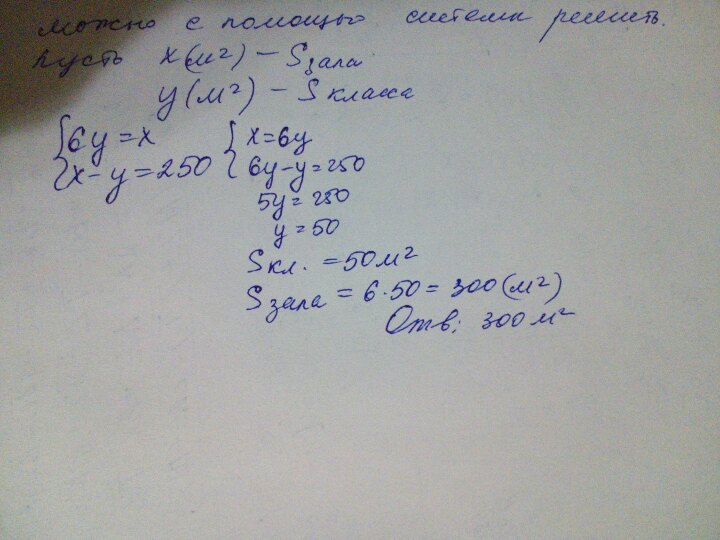 можно с помощью системы решить.
Пусть x(м²) – S зала
y(м²) – S класса
{6y=x {x=6y
{x-y=250 {6y-y=250
5y=250
y=50
S кл. =50м²
S зала = 6·50=300(м²)
Отв: 300м²